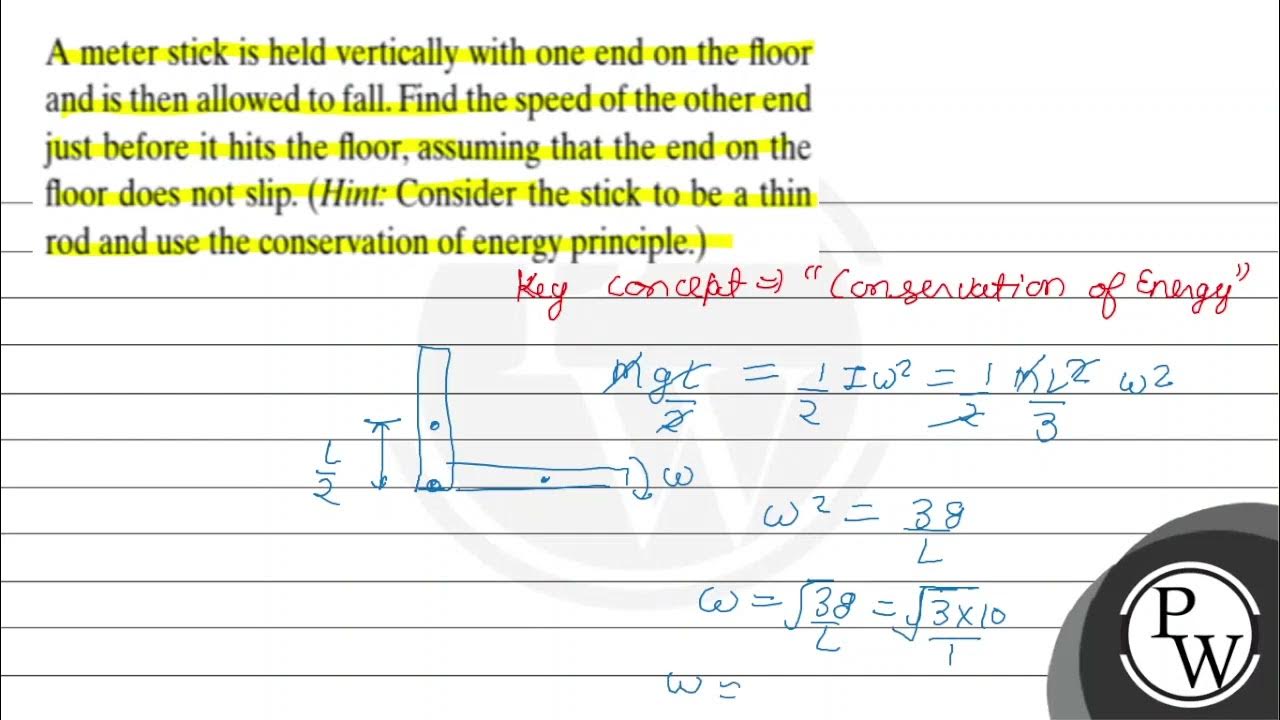 A meter stick is held vertically with one end on the floor
and is then allowed to fall. Find the speed of the other end
just before it hits the floor, assuming that the end on the
floor does not slip. (Hint: Consider the stick to be a thin
rod and use the conservation of energy principle.)
Key concept ⇒ "Conservation of Energy"
Mg L/2 = 1/2 Iω² = 1/2 ML²/3 ω²
L/2
ω
ω² = 3g/L
ω = √3g/L = √3×10/1
ω =
P
W